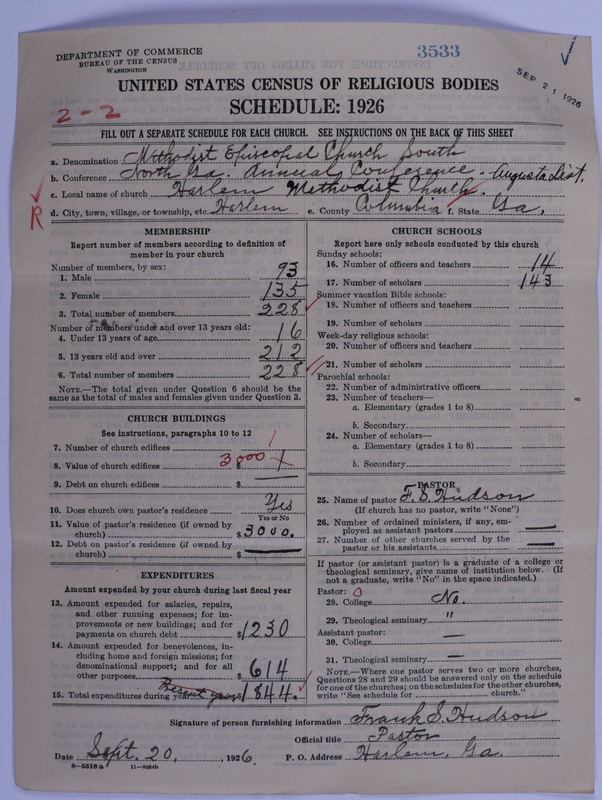 DEPARTMENT OF COMMERCE
BUREAU OF THE CENSUS
WASHINGTON
3533
SEP 21 1926
2-2
UNITED STATES CENSUS OF RELIGIOUS BODIES
SCHEDULE: 1926
FILL OUT A SEPARATE SCHEDULE FOR EACH CHURCH. SEE INSTRUCTIONS ON THE BACK OF THIS SHEET
a. Denomination Methodist Episcopal Church South
b. Conference North Ga. Annual Conference - Augusta Dist.
c. Local name of church Harlem Methodist Church.
R
d. City, town, village, or township, etc. Harlem e. County Columbia f. State Ga.
MEMBERSHIP
Report number of members according to definition of member in your church
Number of members, by sex:
1. Male 93
2. Female 135
3. Total number of members 228
Number of members under and over 13 years old:
4. Under 13 years of age 16
5. 13 years old and over 212
6. Total number of members 228
NOTE.—The total given under Question 6 should be the same as the total of males and females given under Question 3.
CHURCH BUILDINGS
See instructions, paragraphs 10 to 12
7. Number of church edifices 1
8. Value of church edifices 3000 $ 1
9. Debt on church edifices $
10. Does church own pastor's residence Yes
Yes or No
11. Value of pastor's residence (if owned by church) $3000.
12. Debt on pastor's residence (if owned by church) $
EXPENDITURES
Amount expended by your church during last fiscal year
13. Amount expended for salaries, repairs, and other running expenses; for improvements or new buildings; and for payments on church debt $1230
14. Amount expended for benevolences, including home and foreign missions; for denominational support; and for all other purposes $614
Present year
15. Total expenditures during year $1844.
CHURCH SCHOOLS
Report here only schools conducted by this church
Sunday schools:
16. Number of officers and teachers 14
17. Number of scholars 143
Summer vacation Bible schools:
18. Number of officers and teachers
19. Number of scholars
Week-day religious schools:
20. Number of officers and teachers
21. Number of scholars
Parochial schools:
22. Number of administrative officers
23. Number of teachers—
a. Elementary (grades 1 to 8)
b. Secondary
24. Number of scholars—
a. Elementary (grades 1 to 8)
b. Secondary
PASTOR
25. Name of pastor F. S. Hudson
(If church has no pastor, write "None")
26. Number of ordained ministers, if any, employed as assistant pastors —
27. Number of other churches served by the pastor or his assistants —
If pastor (or assistant pastor) is a graduate of a college or theological seminary, give name of institution below. (If not a graduate, write "No" in the space indicated.)
Pastor: 0
28. College No.
29. Theological seminary "
Assistant pastor:
30. College —
31. Theological seminary —
NOTE.—Where one pastor serves two or more churches, Questions 28 and 29 should be answered only on the schedule for one of the churches; on the schedules for the other churches, write "See schedule for church."
Signature of person furnishing information Frank S. Hudson
Official title Pastor
Date Sept. 20, 1926. P. O. Address Harlem, Ga.
8—5518a 11—9264b